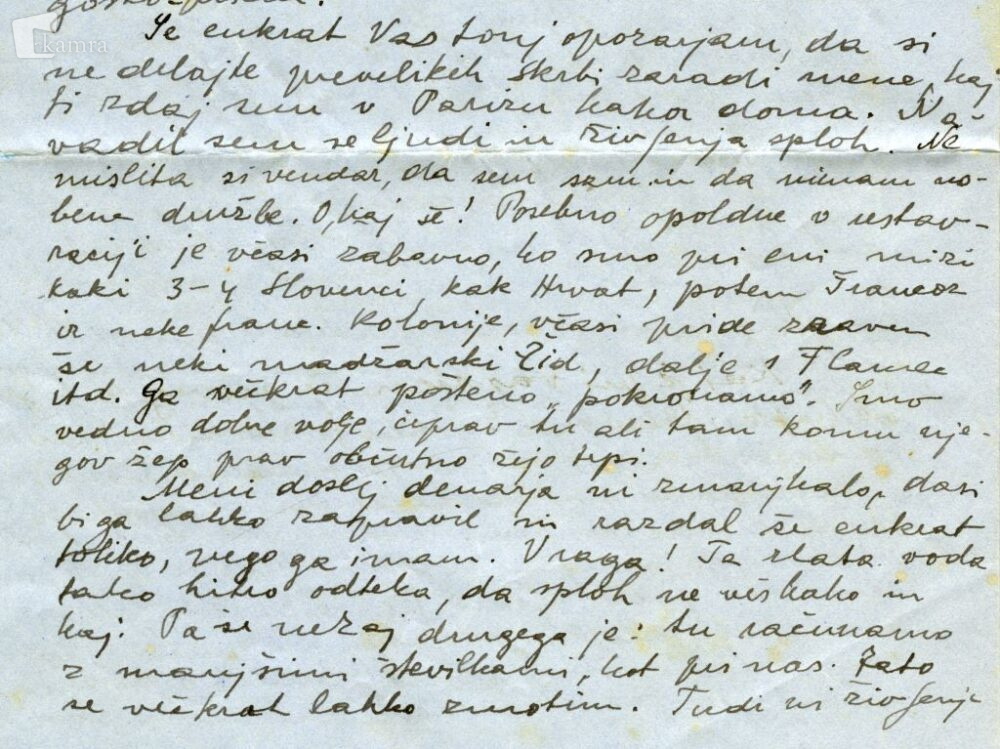 kamra
Še enkrat Vas torej opozarjam, da si
ne delajte prevelikih skrbi zaradi mene, kaj
ti zdaj sem v Parizu kakor doma. Na-
vadil sem se ljudi in življenja sploh. Ne
mislita si vendar, da sem sam in da nimam no-
bene družbe. O, kaj še! Posebno opoldne v restav-
raciji je včasi zabavno, ko smo pri eni mizi
kaki 3-4 Slovenci, kak Hrvat, potem Francoz
iz neke franc. kolonije, včasi pride zraven
še neki madžarski Žid, dalje 1 Flamec
itd. Ga večkrat pošteno „pokronamo“. Smo
vedno dobre volje, čeprav tu ali tam komu nje-
gov žep prav občutno žejo trpi.
Meni doslej denarja ni zmanjkalo, dasi
bi ga lahko zapravil in razdal še enkrat
toliko, nego ga imam. Vraga! Ta zlata voda
tako hitro odteka, da sploh ne veš kako in
kaj. Pa še nekaj drugega je: tu računamo
z manjšimi številkami, kot pri nas. Zato
se večkrat lahko zmotim. Tudi ni življenje